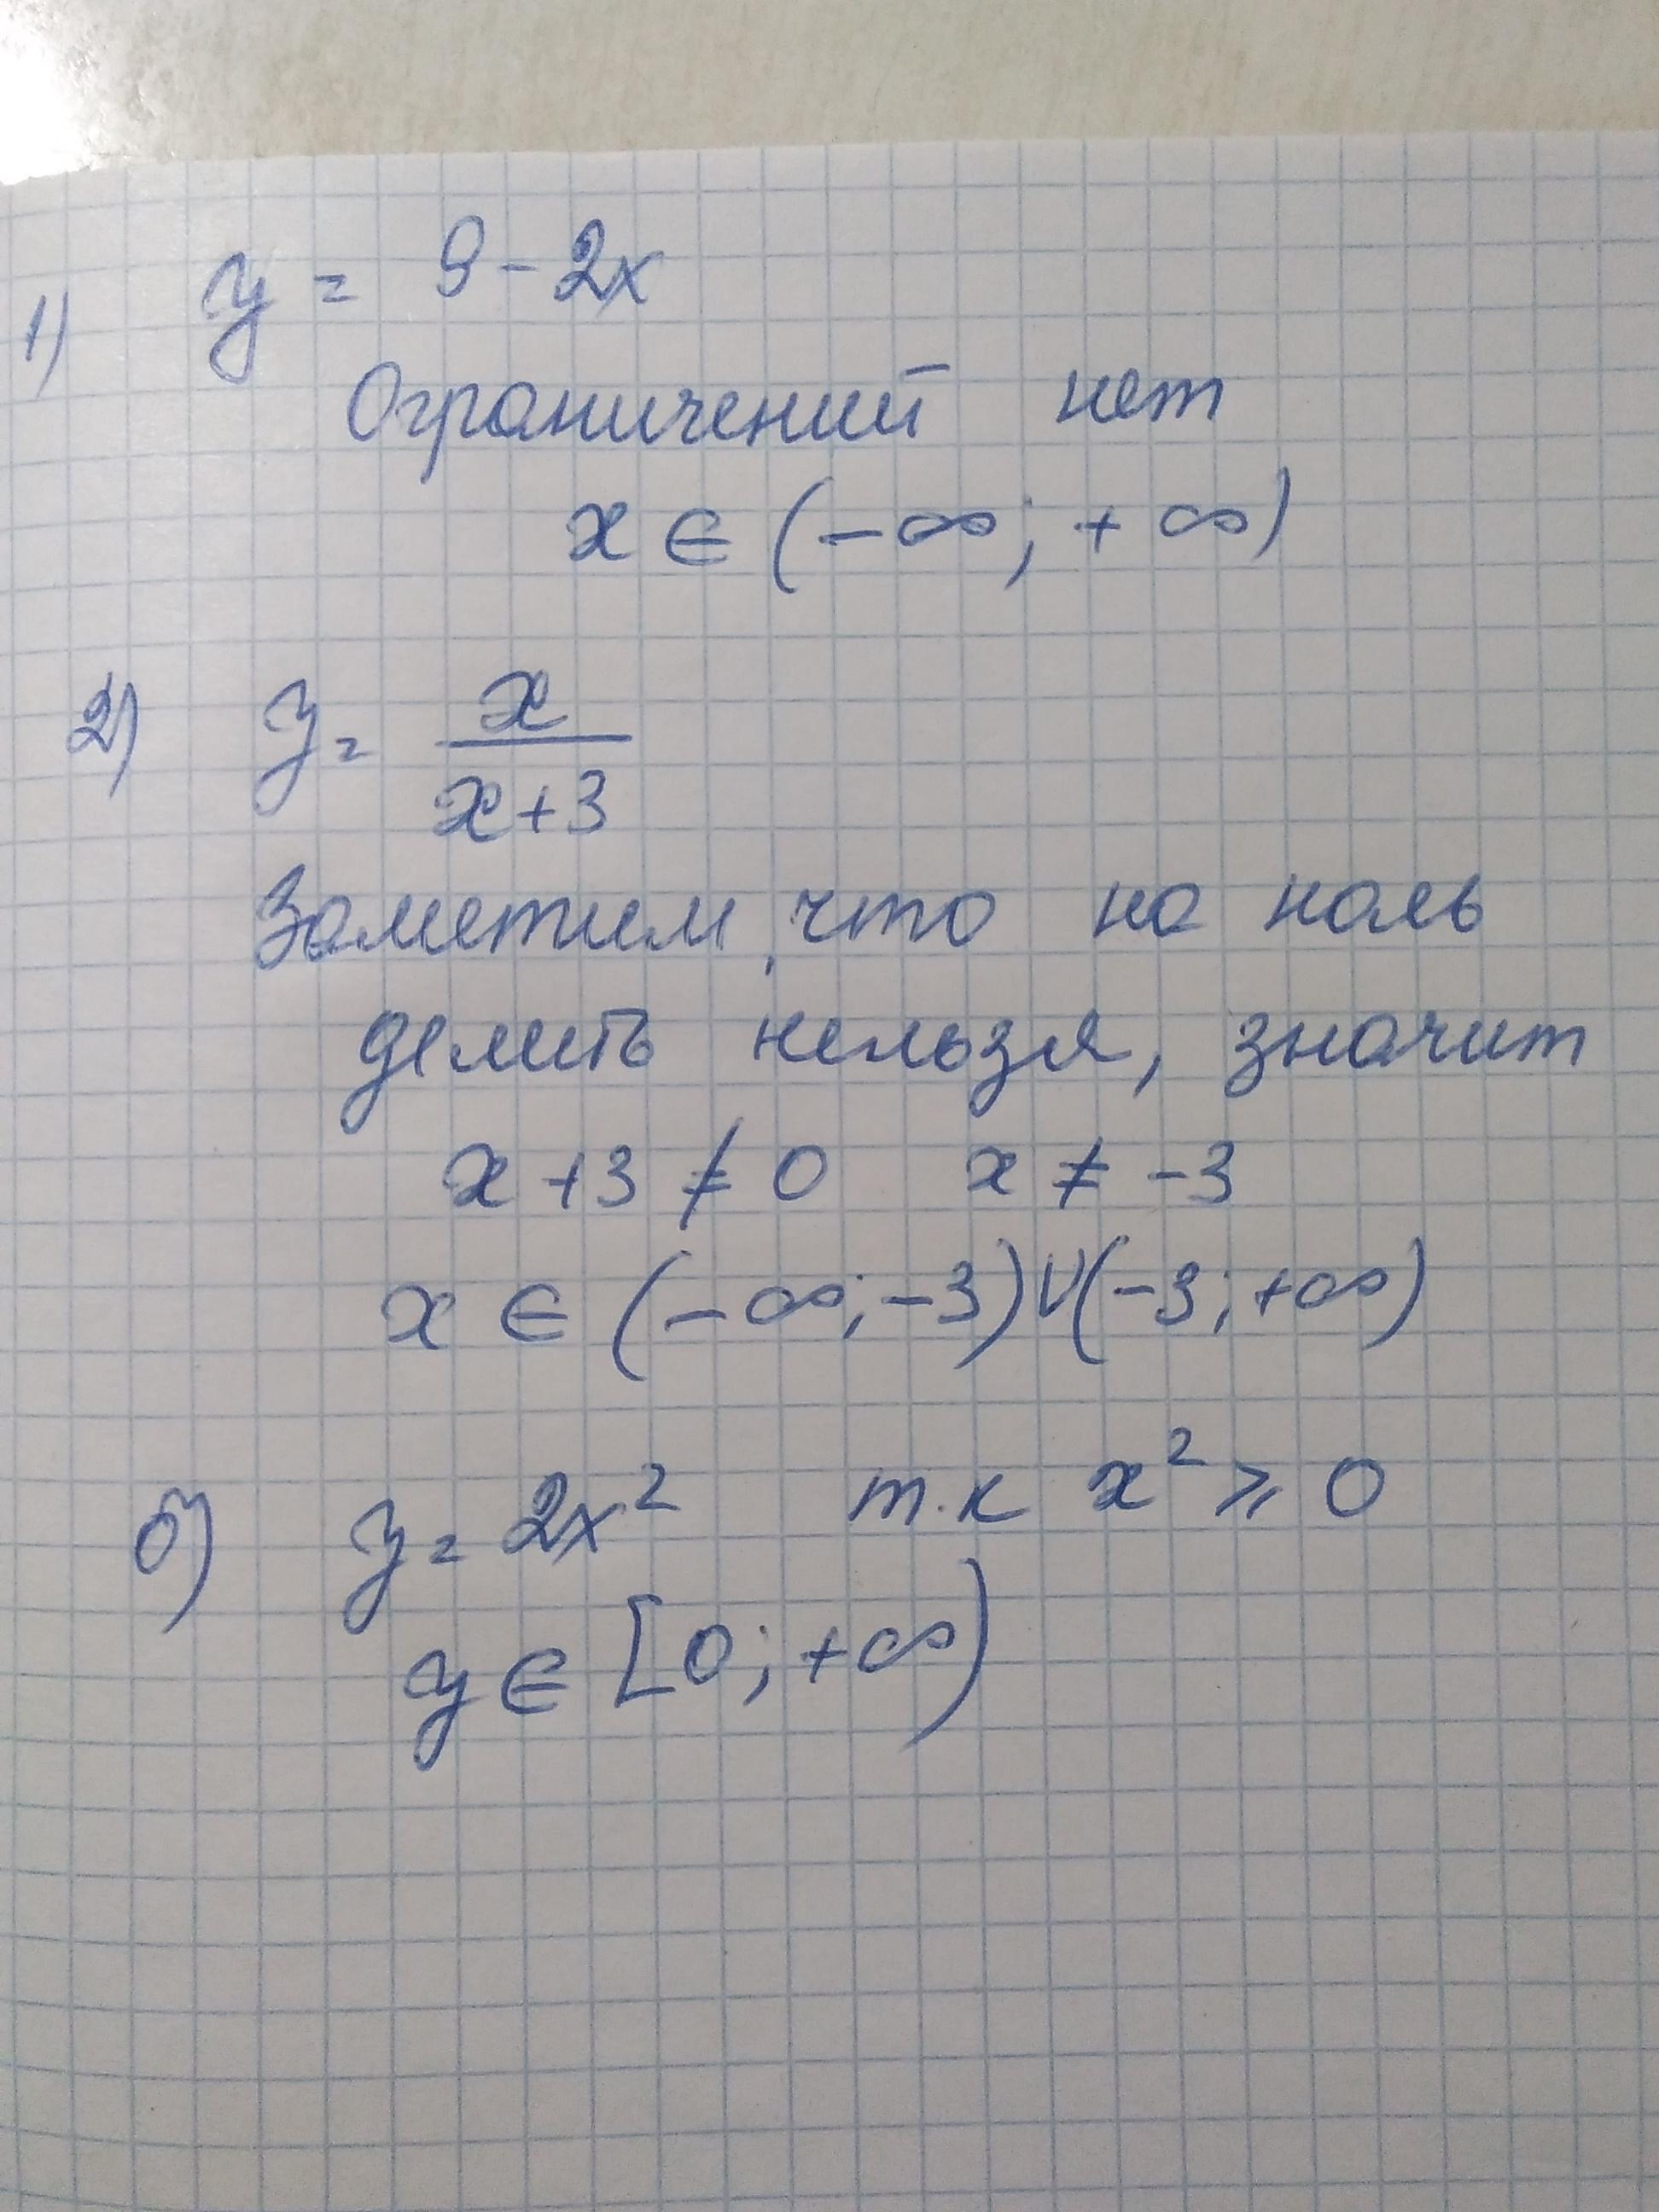 1) y = 9 - 2x
Ограничений нет
x ∈ (-∞; +∞)
2) y = x/(x+3)
Заметим, что на ноль
делить нельзя, значит
x + 3 ≠ 0 x ≠ -3
x ∈ (-∞; -3) ∪ (-3; +∞)
б) y = 2x² т.к x² ⩾ 0
y ∈ [0; +∞)